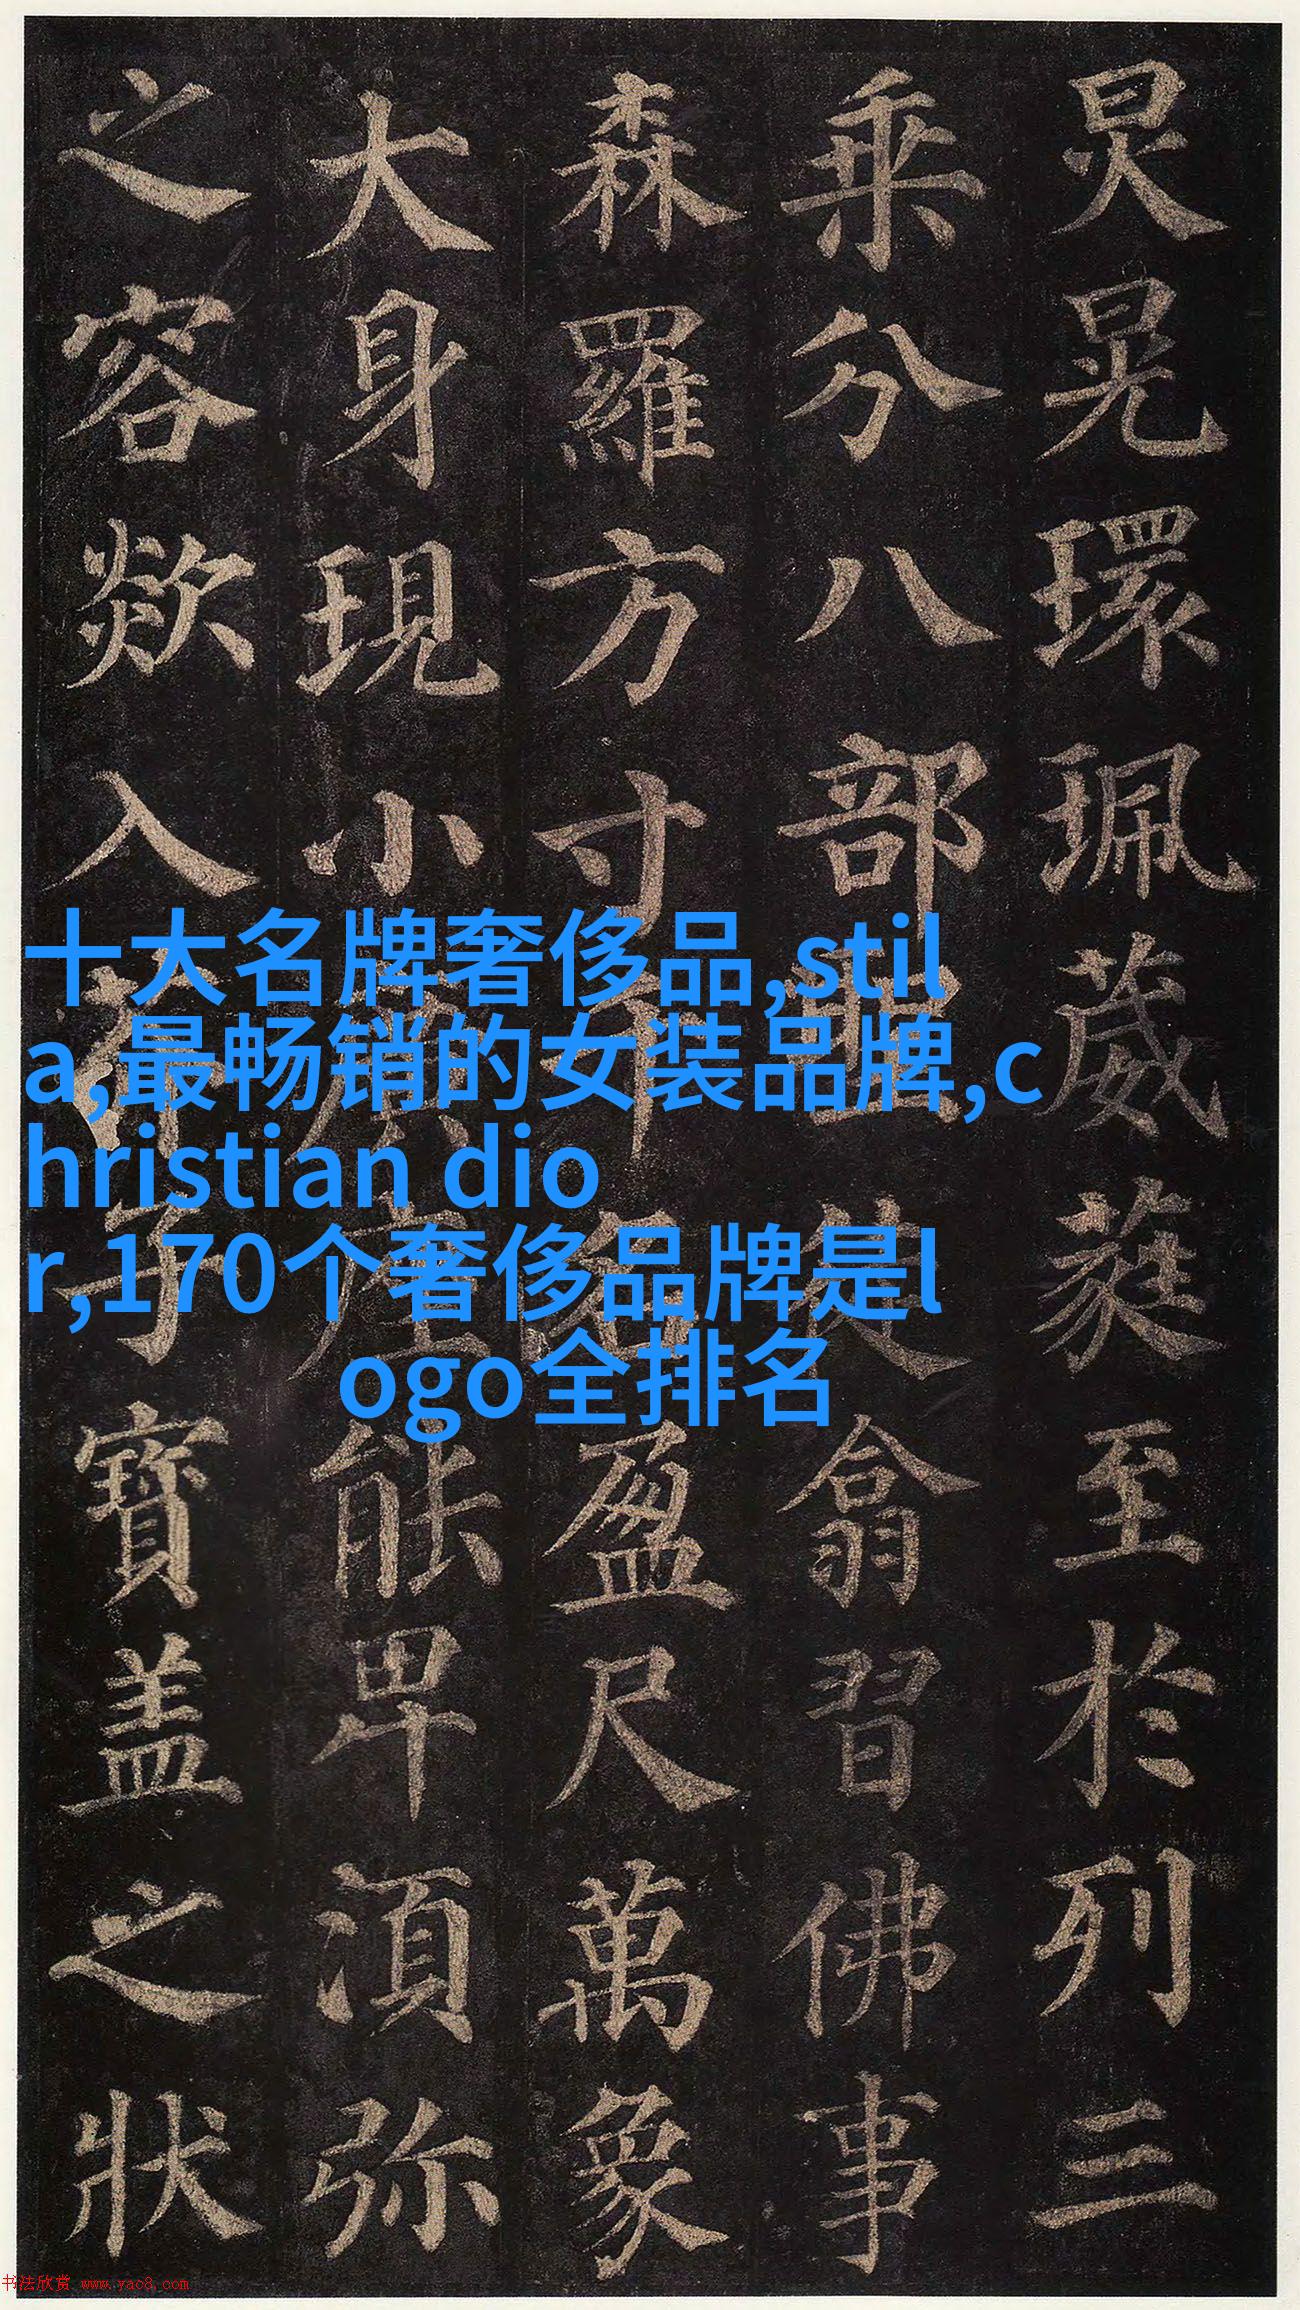 炅晃環珮葳蕤至於列三
乘分八部聖徒翕習佛事
森羅方寸千名盈尺萬象
大身現小廣座能卑湏弥
之容欻入芥子寶盖之狀
十大名牌奢侈品,stil
a,最畅销的女装品牌,c
hristian dio
r,170个奢侈品牌是l
ogo全排名
书法欣赏 www.yac8.com